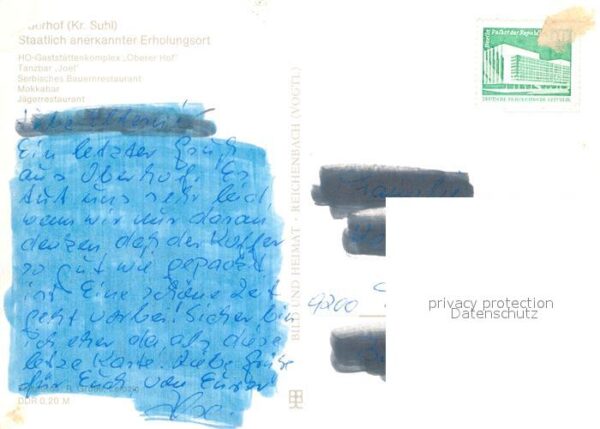 erhof (Kr. Suhl)
Staatlich anerkannter Erholungsort
HO-Gaststättenkomplex „Oberer Hof"
Tanzbar „Joel"
Serbisches Bauernrestaurant
Mokkabar
Jägerrestaurant
Ein letzter Gruß
aus Oberhof. Es
tut uns sehr leid
wenn wir nur daran
denken daß der Koffer
so gut wie gepackt
ist. Eine schöne Zeit
geht vorbei! Sicher bin
ich eher da als diese
letzte Karte. Liebe Grüße
für Euch von Eurer
DDR 0,20 M
BILD UND HEIMAT · REICHENBACH (VOGTL)
Berlin Palast der Republik
DEUTSCHE DEMOKRATISCHE REPUBLIK
9200
privacy protection
Datenschutz